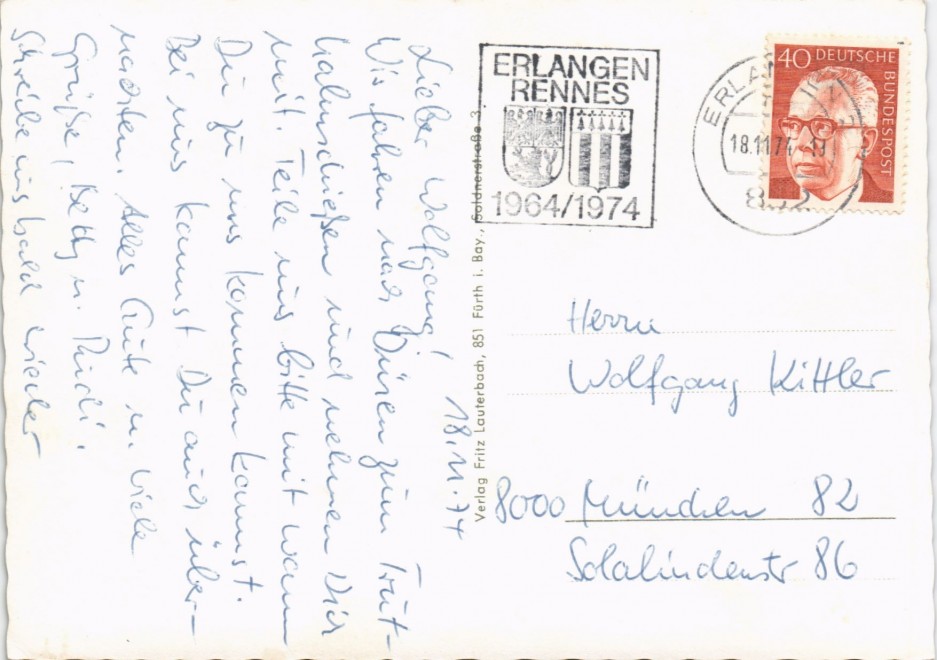 18.11.74
Lieber Wolfgang!
Wir fahren nach Düren zum Trut-
hahnschießen und nehmen Dich
mit. Teile uns bitte mit wann
Du zu uns kommen kannst.
Bei uns kannst Du auch über-
nachten. Alles Gute u. viele
Grüße, Betty u. Rudi.
Schreibe uns bald wieder
Verlag Fritz Lauterbach, 851 Fürth i. Bay., Soldnerstraße 3
ERLANGEN
RENNES
1964/1974
18.11.74
852
40 DEUTSCHE
BUNDESPOST
Herrn
Wolfgang Kittler
8000 München 82
Solalindenstr 86